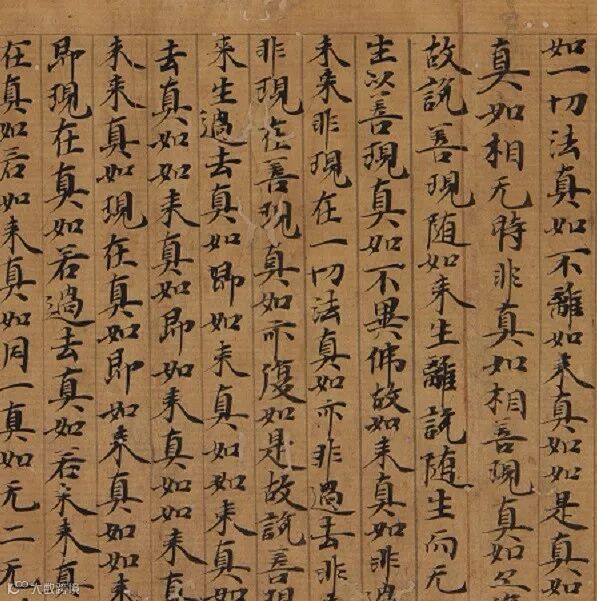 如一切法真如不離如来真如如是真如
真如相无時非真如相善現真如
故說善現随如来生雖說随生而无
生以善現真如不異佛故如来真如非過
未来非現在一切法真如亦非過去非
非現在善現真如亦復如是故說善現
来生過去真如即如来真如如来真
去真如如来真如即如来真如如来
未来真如現在真如即如来真如如来
即現在真如若過去真如若未来真
在真如若如来真如同一真如无二无
大数跨境